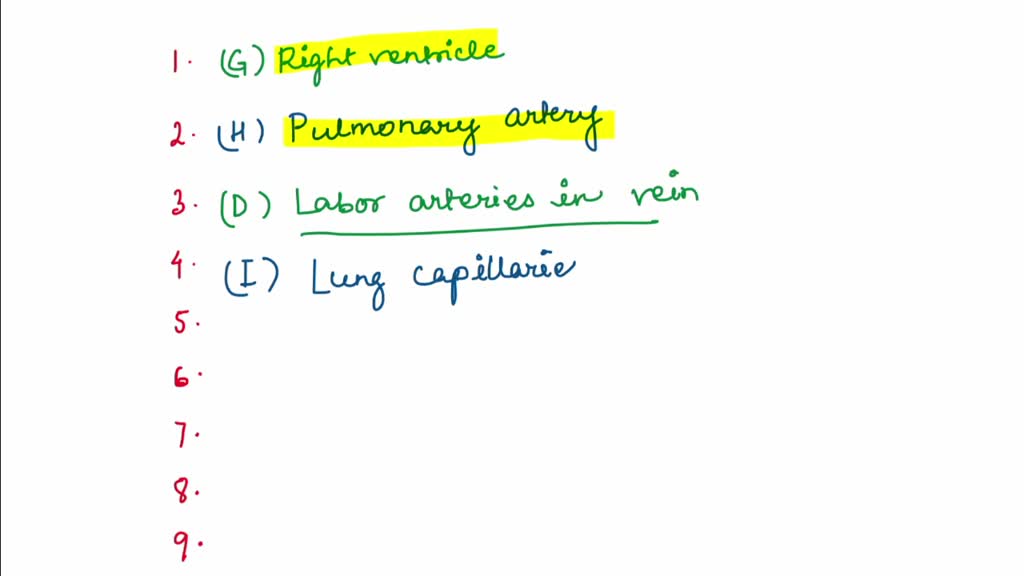 1. (G) Right ventricle
2. (H) Pulmonary artery
3. (D) Labor arteries in vein
4. (I) Lung capillarie
5.
6.
7.
8.
9.